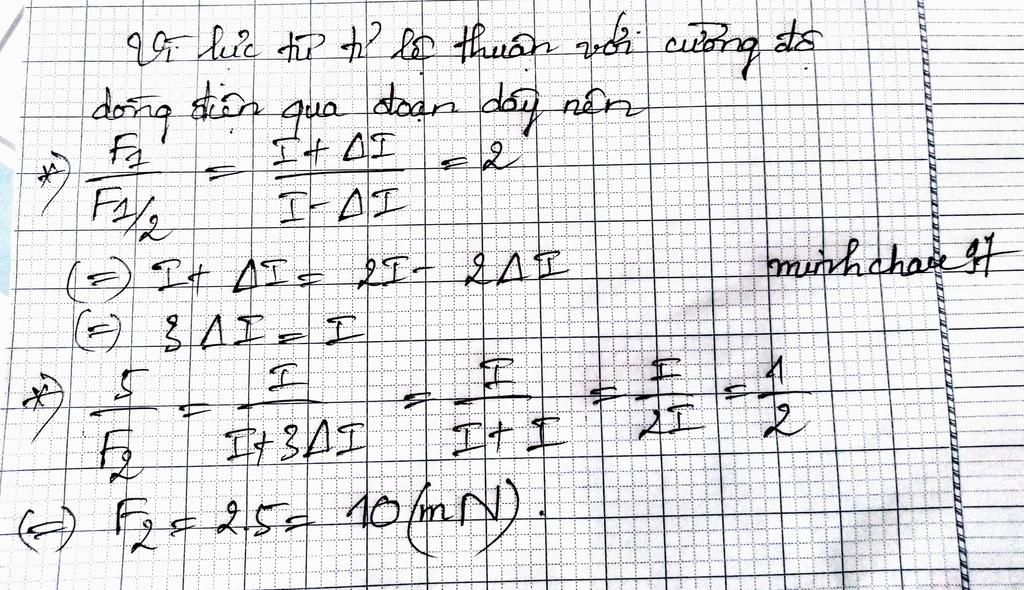 Vì lực từ tỉ lệ thuận với cường độ
dòng điện qua đoạn dây nên
*) F1 / F1/2 = I + ΔI / I - ΔI = 2
(=) I + ΔI = 2I - 2ΔI
minhchau 97
(=) 3ΔI = I
*) 5 / F2 = I / I+3ΔI = I / I+I = I / 2I = 1 / 2
(=) F2 = 2.5 = 10 (mN).